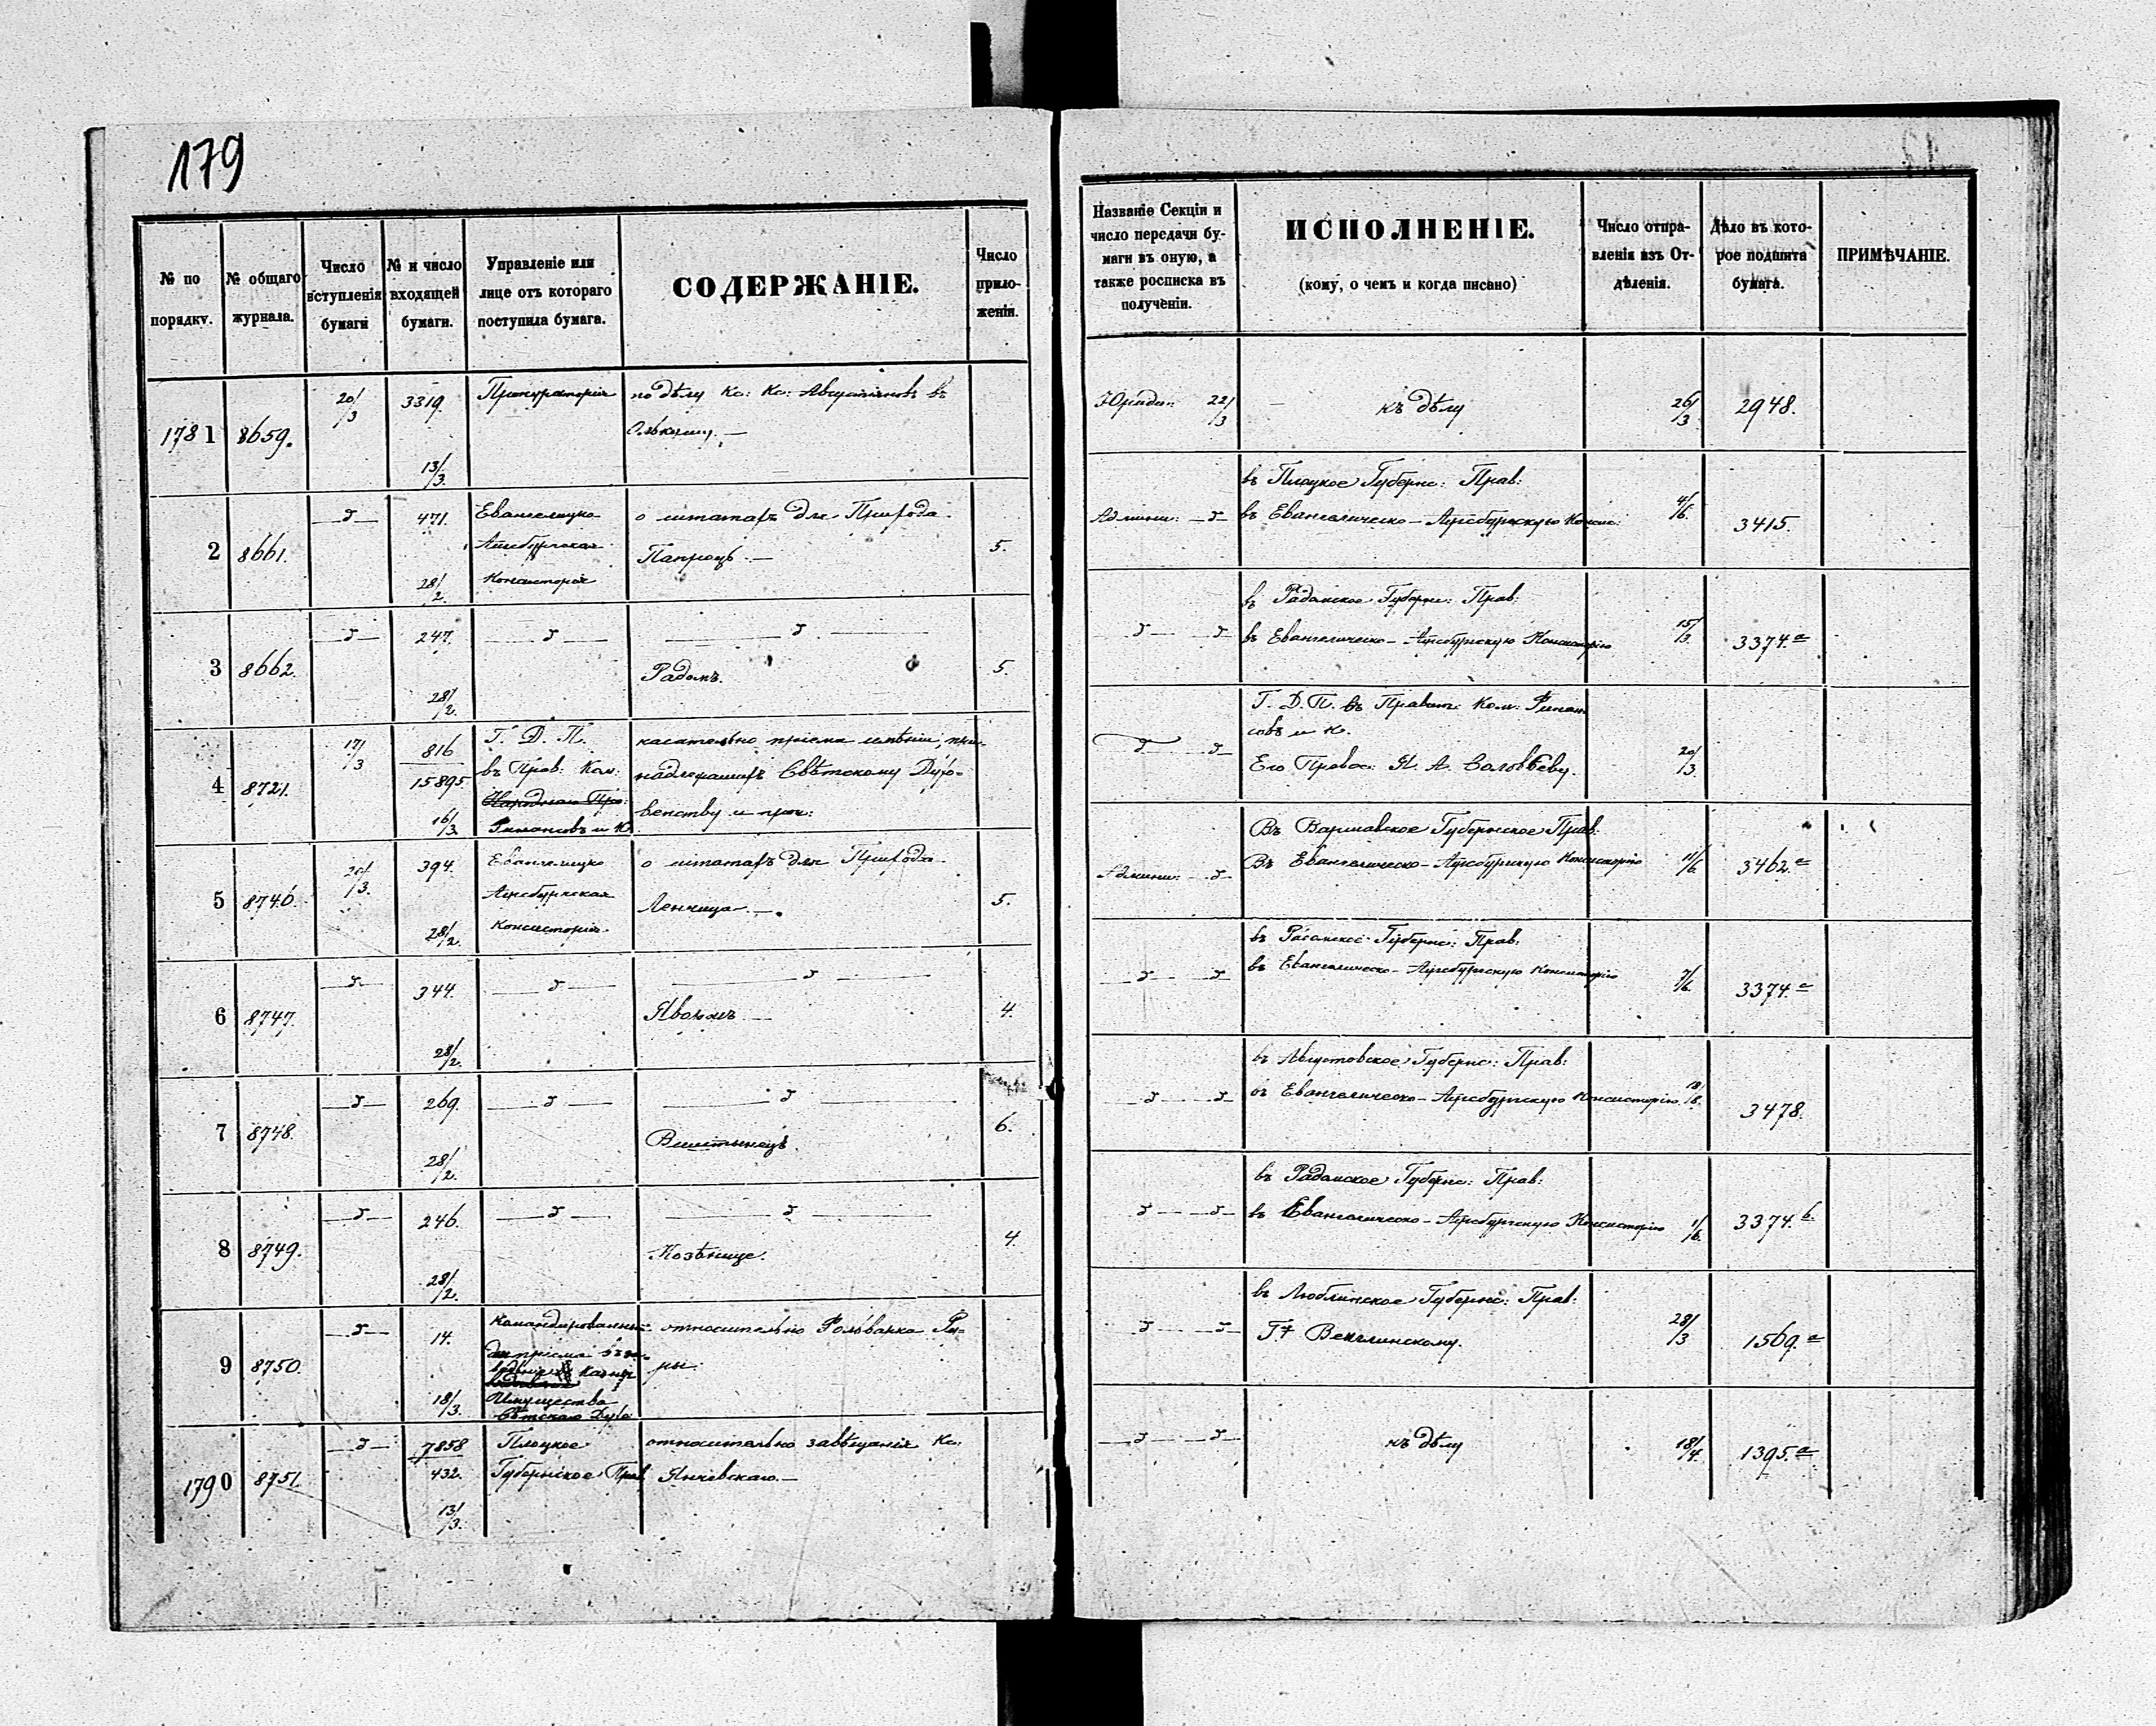 179
№ по порядку.
№ общаго журнала.
Число вступленія бумаги
№ и число входящей бумаги.
Управленіе или лице отъ котораго поступила бумага.
СОДЕРЖАНІЕ.
Число приложеніи.
Названіе Секціи и число передачи бумаги въ оную, а также росписка въ полученіи.
ИСПОЛНЕНІЕ.
(кому, о чемъ и когда писано)
Число отправленія изъ Отдѣленія.
Дѣло въ которое подшита бумага.
ПРИМѢЧАНІЕ.
1781 8659. 20/3 3319. 13/3. Прокураторія по дѣлу Кс: Кс: Августіановъ въ
Олькушу. —
22/3 къ дѣлу 26/3 2948.
2 8661. —д— 471. 28/2. Евангелицко- Аугсбургская Консисторія о штатахъ для Прихода
5.
Админи: —д— въ Плоцкое Губернс: Прав:
въ Евангелическо-Аугсбургскую Консис: 4/6. 3415.
3 8662. —д— 247. 28/2. —д— —д—
Радомъ. 5.
—д— —д— въ Радомское Губернс: Прав:
въ Евангелическо-Аугсбургскую Консисторію 15/3. 3374.a
4 8721. 17/3 816 15895 16/3 Г. Д. П.
въ Прав: Ком:
Финансовъ и К.
касательно пріема имѣніи, при-
надлежащихъ Свѣтскому Духо-
венству и проч:
д —д— Г. Д. П. въ Правит: Ком: Финан-
совъ и К.
Его Превос: Я. А. Соловьеву. 20/3.
5 8746. 20/3. 394. 28/2. Евангелицко Аугсбургская Консисторія. о штатахъ для Прихода
Ленчица —. 5.
Админи: —д— Въ Варшавское Губернское Прав:
Въ Евангелическо-Аугсбургскую Консисторію 11/6 3462.a
6 8747. —д— 344. 28/2. —д— —д—
4.
—д— —д— въ Радомское Губернс: Прав:
въ Евангелическо-Аугсбургскую Консисторію 7/6. 3374.a
7 8748. —д— 269. 28/2. —д— —д—
Виштынецъ. 6.
—д— —д— въ Августовское Губернс: Прав:
въ Евангелическо-Аугсбургскую Консисторію 3478.
8 8749. —д— 246. 28/2. —д— —д—
Козѣнице. 4.
—д— —д— въ Радомское Губернс: Прав:
въ Евангелическо-Аугсбургскую Консисторію 1/6. 3374.b.
9 8750. —д— 14. 18/3. Командированный
для пріема въ за-
Казны
Имущества
Свѣтскаго Духо:
относительно Фольварка Ру-
ры.
—д— —д— въ Люблинское Губернс: Прав:
28/3 1569.a
1790 8751. —д— 7858 432. 13/3. Плоцкое
Губернское Прав
относительно завѣщанія Кс:
Янчевскаго. —
—д— —д— къ дѣлу 18/4. 1395.a